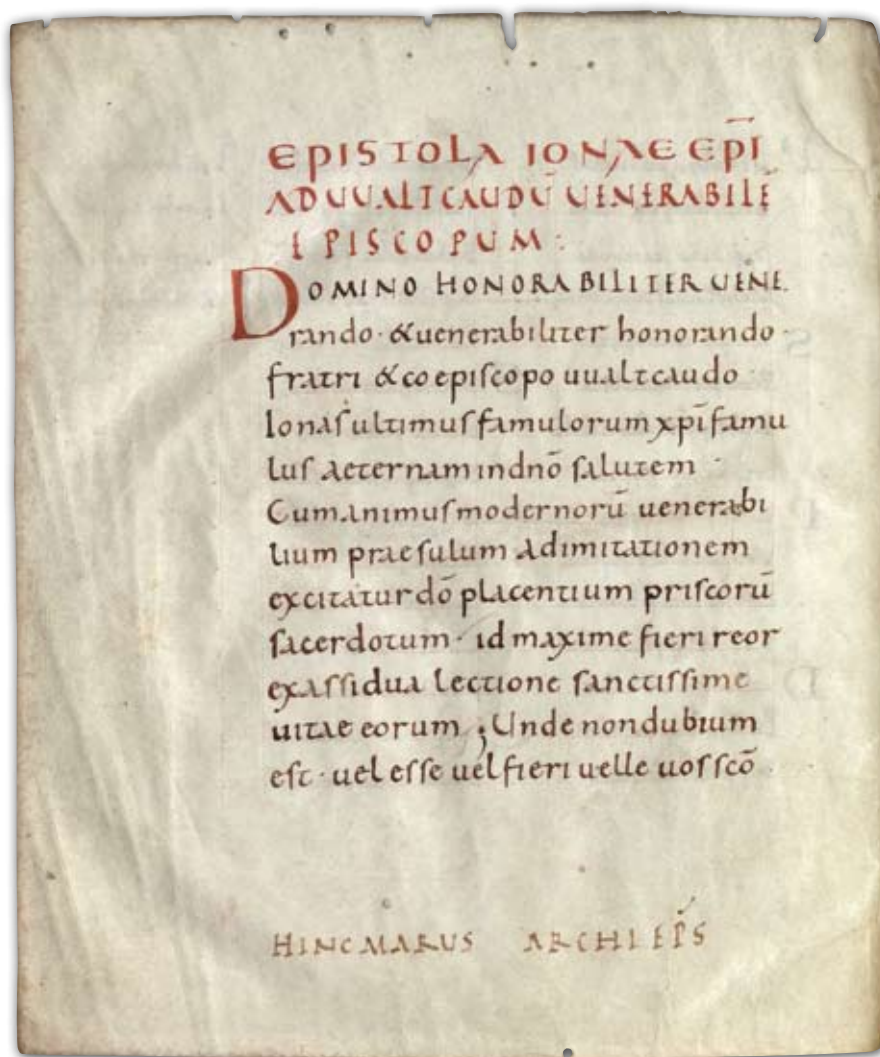 EPISTOLA IONAE EPĪ
AD UUALTCAUDŪ UENERABILĒ
EPISCOPUM:
DOMINO HONORABILITER UENE
rando · & uenerabiliter honorando ·
fratri & coepiscopo uualtcaudo ·
Ionas ultimus famulorum xpī famu
lus aeternam in dnō salutem ·
Cum animus modernorū uenerabi
lium praesulum ad imitationem
excitatur dō placentium priscorū
sacerdotum · id maxime fieri reor
ex assidua lectione sanctissime
uitae eorum ; Unde non dubium
est · uel esse uel fieri uelle uos scō
HINCMARUS ARCHIEPS̄